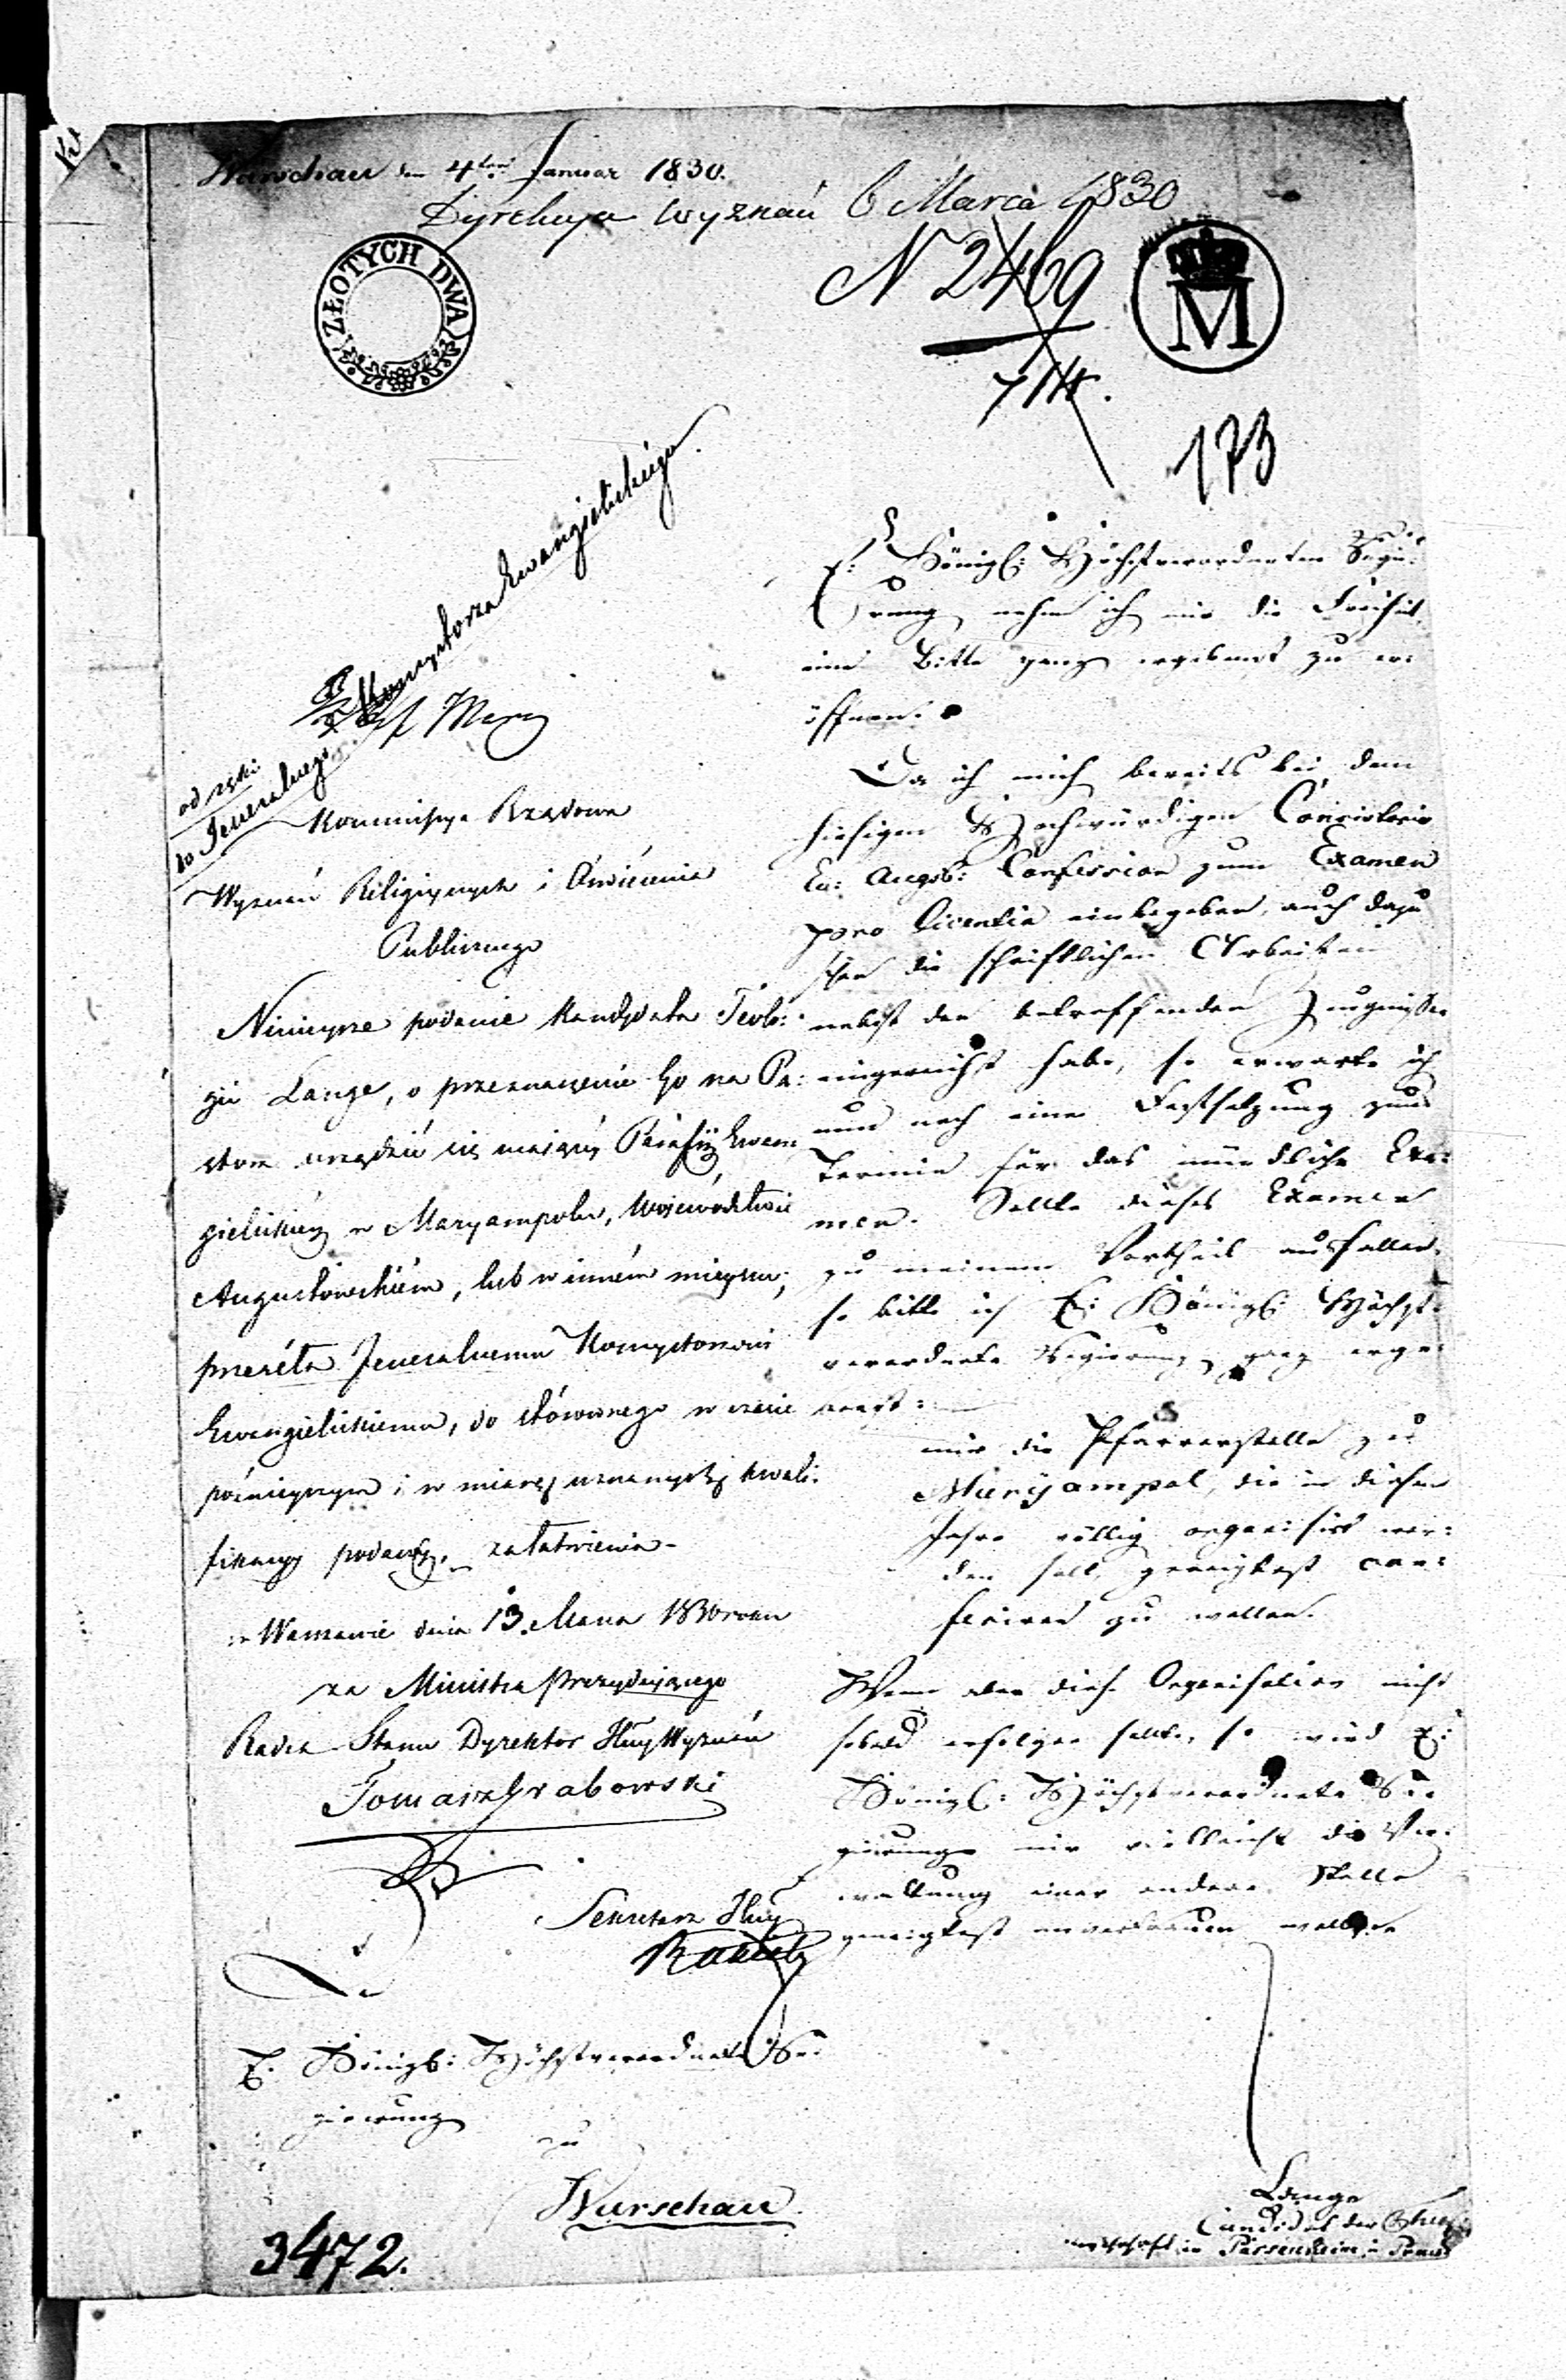 Warschau den 4ten Januar 1830.
Dyrekcya Wyznań 6 Marca 1830
ZŁOTYCH DWA
N 2469
M
173
Konsystorza Ewangielickiego
Jeneralnego
Kommissya Rządowa
Wyznań Religiynych i Oświecenia
Publicznego
Ninieysze podanie Kandydata Teolo:
gii Lange, o przeznaczenie go na Pa:
stora urządzić się maiącéy Parafii Ewan:
gielickiéy w Maryampolu, Województwie
Augustowskiém, lub w inném mieyscu,
przeséła Jeneralnemu Konsystorzowi
Ewangielickiemu, do stósownego w czasie
póznieyszym i w miarę uznanych kwali:
fikacyi załatwienia
w Warszawie dnia 13. Marca 1830 roku
za Ministra Prezyduiącego
Radca Stanu Dyrektor Wyznań
Tomasz Grabowski
Sekretarz
E: Königl: Höchstverordneten Regie:
rung nehm ich mir die Freiheit,
eine Bitte ganz ergebenst zu er:
öffnen.
Da ich mich bereits bei dem
hiesigen Hochwürdigen Consistorio
Ev: Augsb: Confession zum Examen
pro licentia einbegeben, auch dazu
schon die schriftlichen Arbeiten
nebst den betreffenden Zeugnissen
eingereicht habe, so erwarte ich
nun noch eine Festsetzung zum
Termin für das mündliche Exa:
men. Sollte dieses Examen
zu meinem Vortheil ausfallen,
so bitte ich E: Königl: Höchst:
verordnete Regierung ganz erge:
benst:
mir die Pfarrerstelle zu
Maryampol, die in diesem
Jahre völlig organisirt wer:
den soll, geneigtest con:
feriren zu wollen.
Wenn aber diese Organisation nicht
sobald erfolgen sollte, so wird E:
Königl: Höchstverordnete Re:
gierung mir vielleicht die Ver:
waltung einer andern Stelle
geneigtest anvertrauen wollen
E. Königl: Höchstverordnete Re:
gierung
zu
Warschau
Lange
Candidat der
in Passenheim in
3472.